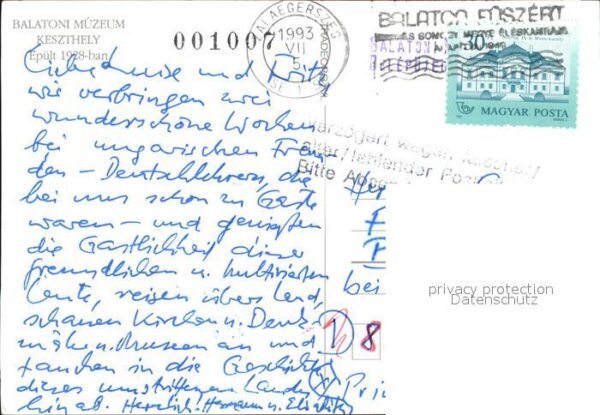 BALATONI MÚZEUM
KESZTHELY
Épült 1928-ban
001007
ZALAEGERSZEG
1993
VII
5.
BALATON FŰSZÉRT
BALATON
MAGYAR POSTA
Verzögert wegen falscher/
alter/fehlender Post
Bitte
Liebe und Fritz,
wir verbringen zwei
wunderschöne Wochen
bei ungarischen Freun-
den – Deutschlehrern, die
bei uns schon zu Gaste
waren – und genießen
die Gastlichkeit dieser
freundlichen u. kultivierten
Leute, reisen übers Land,
schauen Kirchen u. Denk-
mäler u. Museen an und
tauchen in die Geschichte
dieses umstrittenen Landes
hinab. Herzlich! Hermann u. Elisabeth
bei
8
privacy protection
Datenschutz